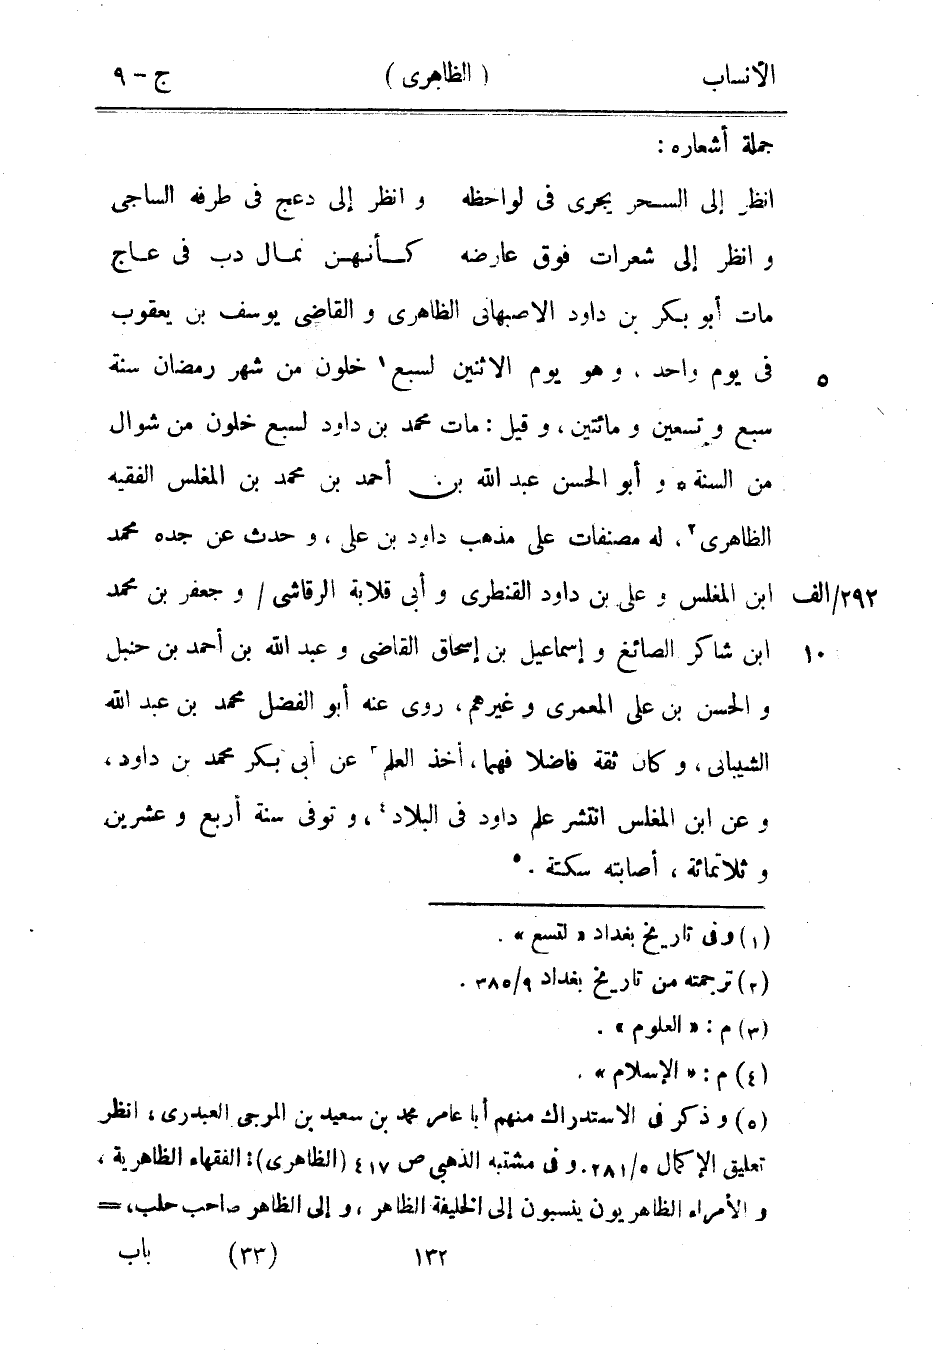 الأنساب ( الظاهرى ) ج - ٩
جملة أشعاره :
انظر إلى السحر يجرى فى لواحظه و انظر إلى دعج فى طرفه الساجى
و انظر إلى شعرات فوق عارضه كأنهن نمال دب فى عاج
مات أبو بكر بن داود الاصبهانى الظاهرى و القاضى يوسف بن يعقوب
فى يوم واحد ، و هو يوم الاثنين لسبع ١ خلون من شهر رمضان سنة ٥
سبع و تسعين و مائتين ، و قيل : مات محمد بن داود لسبع خلون من شوال
من السنة ه و أبو الحسن عبد الله بن أحمد بن محمد بن المغلس الفقيه
الظاهرى ٢ ، له مصنفات على مذهب داود بن على ، و حدث عن جده محمد
٢٩٢/الف ابن المغلس و على بن داود القنطرى و أبى قلابة الرقاشى / و جعفر بن محمد
١٠ ابن شاكر الصائغ و إسماعيل بن إسحاق القاضى و عبد الله بن أحمد بن حنبل
و الحسن بن على المعمرى و غيرهم ، روى عنه أبو الفضل محمد بن عبد الله
الشيبانى ، و كان ثقة فاضلا فهما ، أخذ العلم ٣ عن أبى بكر محمد بن داود ،
و عن ابن المغلس انتشر علم داود فى البلاد ٤ ، و توفى سنة أربع و عشرين
و ثلاثمائة ، أصابته سكتة . ٥
(١) و فى تاريخ بغداد « لتسع » .
(٢) ترجمته من تاريخ بغداد ٩/٣٨٥ .
(٣) م : « العلوم » .
(٤) م : « الإسلام » .
(٥) و ذكر فى الاستدراك منهم أبا عامر محمد بن سعيد بن المرجى العبدرى ، انظر
تعليق الإكمال ٥/٢٨١. و فى مشتبه الذهبي ص ٤١٧ (الظاهرى): الفقهاء الظاهرية ،
و الأمراء الظاهريون ينسبون إلى الخليفة الظاهر ، و إلى الظاهر صاحب حلب، =
١٣٢ (٣٣) باب